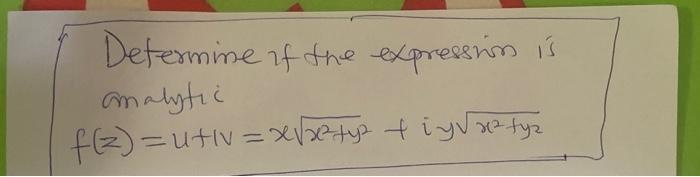 Determine if the expression is
analytic
f(z) = u+iv = x√x²+y² + i y√x²+y²